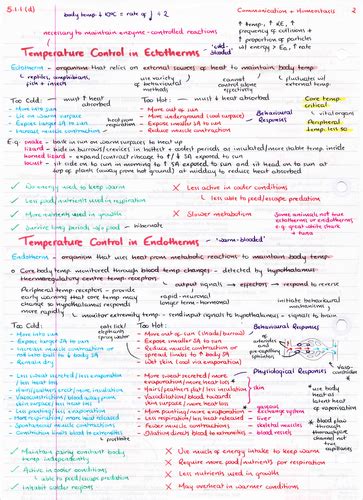 5.1.1 (d)
Communication + Homeostasis 2
body temp ↓ 10°C = rate of ↓ ÷ 2
necessary to maintain enzyme-controlled reactions
↑ temp, ↑ KE, ↑
frequency of collisions +
↑ proportion of particles
w/ energy > Ea, ↑ rate
Temperature Control in Ectotherms - 'cold-blooded'
Ectotherm - organism that relies on external sources of heat to maintain body temp
↳ reptiles, amphibians,
fish + insects
use variety
of behavioural
methods
cannot
control alone
effectively
↳ fluctuates w/
external temp
Too Cold: — must ↑ heat
absorbed
Too Hot: — must ↓ heat
absorbed
Core temp
critical
↳ vital organs
Peripheral
temp. less so
↳ More into sun
↳ Lie on warm surface
↳ Expose larger SA to sun
↳ Increase muscle contractions
heat from
respiration
↳ More out of sun
↳ More underground (cool surface)
↳ Expose smaller SA to sun
↳ Reduce muscle contractions
Behavioural
Responses
E.g. snake - bask in sun on warm surfaces to heat up
lizard - hide in burrows/crevices in hottest + coolest periods as insulated/more stable temp inside
horned lizard - expand/contract ribcage to ↑/↓ SA exposed to sun
locust - sit side on to sun in morning to ↑ SA exposed to sun and sit head on to sun at
top of plants (away from hot ground) at midday to reduce heat absorbed
✓ No energy used to keep warm
✓ Less food/nutrients used in respiration
✓ More nutrients used in growth
✓ Survive long periods w/o food - hibernate
✗ Less active in cooler conditions
↳ less able to feed/escape predation
✗ Slower metabolism
Some animals not true
ectotherms or endotherms,
e.g. great white shark
+ tuna
Temperature Control in Endotherms - 'warm-blooded'
Endotherm - organism that uses heat from metabolic reactions to maintain body temp
Core body temp monitored through blood temp changes - detected by hypothalamus
thermoregulatory centre temp receptors
Peripheral temp receptors - provide
early warning that core temp may
change so hypothalamus responds
more rapidly
output signals → effectors → respond to reverse
rapid - neuronal
longer term - hormonal
initiate behavioural
mechanisms
↳ monitor extremity temp - send input signals to hypothalamus - signals to brain
Too Cold:
Too Hot:
↳ More into sun
↳ Expose larger SA to sun
↳ Increase muscle contraction or
roll into ball to ↓ body SA
↳ Remain dry
↳ More out of sun (shade/burrow)
↳ Expose smaller SA to sun
↳ Reduce muscle contraction or
spread limbs to ↑ body SA
↳ Wet skin (cool via evaporation)
Behavioural Responses
↳ Less sweat secreted/less evaporation
/less heat loss
↳ More sweat secreted/more
evaporation/more heat loss
Physiological Responses
↳ Vasodilation/blood towards
↳ skin
use body
heat as
latent heat of
vaporisation
gaseous
exchange system
liver
skeletal muscles
blood vessels
blood flow
through
thoroughfare
channel not
true
capillaries
✓ Maintain fairly constant body
temp independently
✓ Active in cooler conditions
↳ able to feed/escape predation
✓ Inhabit colder regions
✗ Use much of energy intake to keep warm
✗ Require more food/nutrients for respiration
✗ Less nutrients used in growth
✗ May overheat in warmer conditions